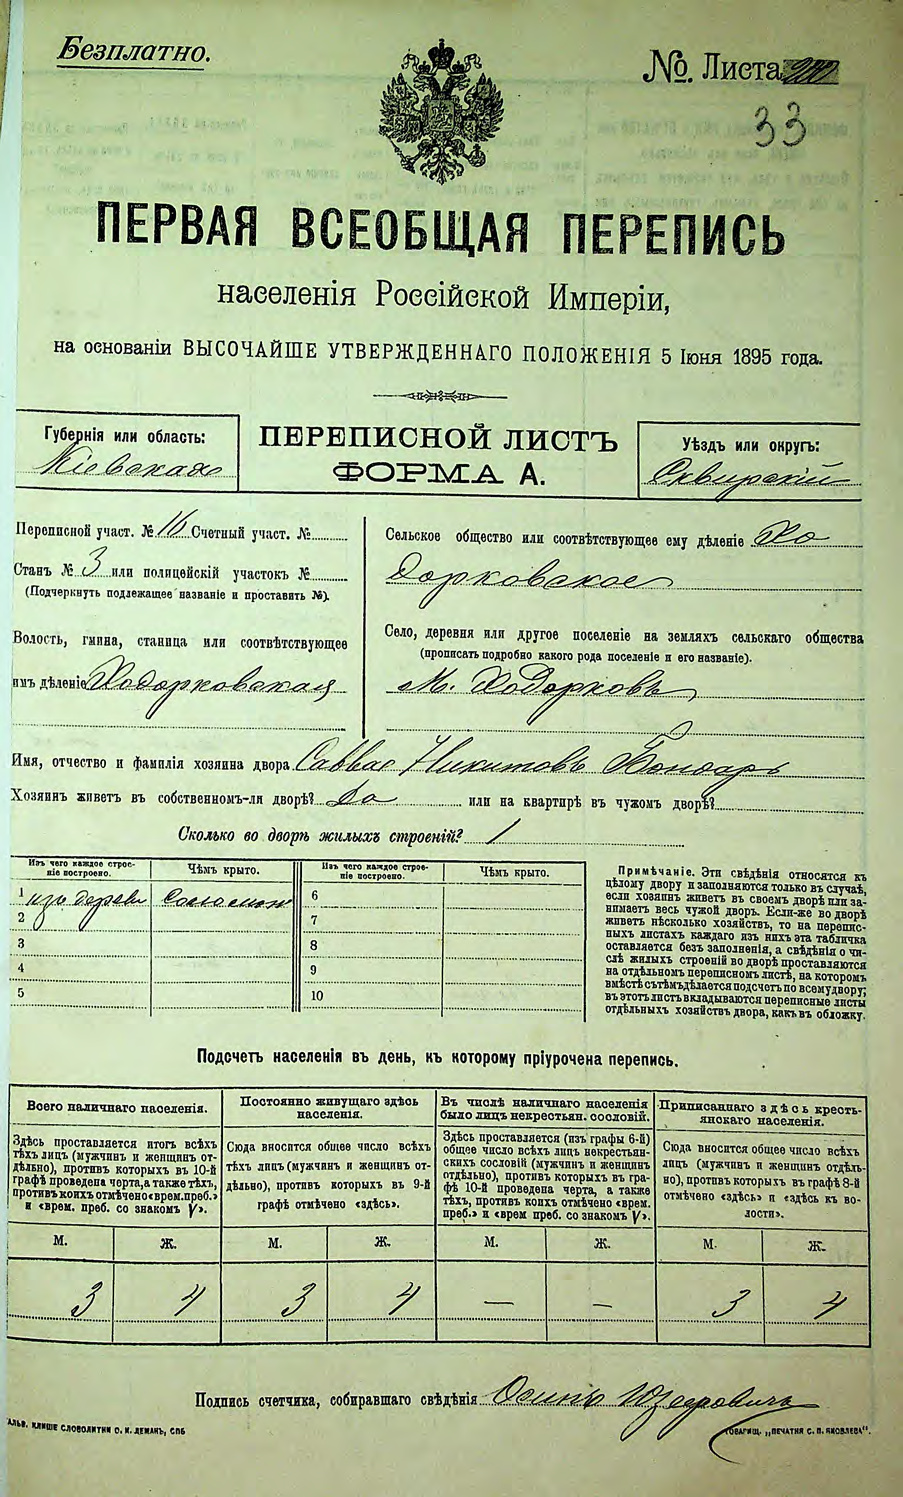 Безплатно.
№ Листа
33
ПЕРВАЯ ВСЕОБЩАЯ ПЕРЕПИСЬ
населенія Россійской Имперіи,
на основаніи ВЫСОЧАЙШЕ УТВЕРЖДЕННАГО ПОЛОЖЕНІЯ 5 Іюня 1895 года.
Губернія или область:
Кіевская
ПЕРЕПИСНОЙ ЛИСТЪ
ФОРМА А.
Уѣздъ или округъ:
Сквирскій
Переписной участ. № 16 Счетный участ. №
Станъ № 3 или полицейскій участокъ №
(Подчеркнуть подлежащее названіе и проставить №).
Волость, гмина, станица или соотвѣтствующее
имъ дѣленіе Ходорковская
Сельское общество или соотвѣтствующее ему дѣленіе Хо
дорковское
Село, деревня или другое поселеніе на земляхъ сельскаго общества
(прописать подробно какого рода поселеніе и его названіе).
М. Ходорковъ
Имя, отчество и фамилія хозяина двора Савва Никитовъ Бондарь
Хозяинъ живетъ въ собственномъ-ли дворѣ? Да или на квартирѣ въ чужомъ дворѣ?
Сколько во дворѣ жилыхъ строеній? 1
Изъ чего каждое строеніе построено.
Чѣмъ крыто.
Изъ чего каждое строеніе построено.
Чѣмъ крыто.
1 изъ дерева Соломою
2
3
4
5
6
7
8
9
10
Примѣчаніе. Эти свѣдѣнія относятся къ
цѣлому двору и заполняются только въ случаѣ,
если хозяинъ живетъ въ своемъ дворѣ или за-
нимаетъ весь чужой дворъ. Если-же во дворѣ
живетъ нѣсколько хозяйствъ, то на перепис-
ныхъ листахъ каждаго изъ нихъ эта табличка
оставляется безъ заполненія, а свѣдѣнія о чи-
слѣ жилыхъ строеній во дворѣ проставляются
на отдѣльномъ переписномъ листѣ, на которомъ
вмѣстѣ съ тѣмъ дѣлается подсчетъ по всему двору;
въ этотъ листъ вкладываются переписные листы
отдѣльныхъ хозяйствъ двора, какъ въ обложку.
Подсчетъ населенія въ день, къ которому пріурочена перепись.
Всего наличнаго населенія.
Здѣсь проставляется итогъ всѣхъ
тѣхъ лицъ (мужчинъ и женщинъ от-
дѣльно), противъ которыхъ въ 10-й
графѣ проведена черта, а также тѣхъ,
противъ коихъ отмѣчено «врем. преб.»
и «врем. преб. со знакомъ V».
Постоянно живущаго здѣсь
населенія.
Сюда вносится общее число всѣхъ
тѣхъ лицъ (мужчинъ и женщинъ от-
дѣльно), противъ которыхъ въ 9-й
графѣ отмѣчено «здѣсь».
Въ числѣ наличнаго населенія
было лицъ некрестьян. сословій.
Здѣсь проставляется (изъ графы 6-й)
общее число всѣхъ лицъ некрестьян-
скихъ сословій (мужчинъ и женщинъ
отдѣльно), противъ которыхъ въ гра-
фѣ 10-й проведена черта, а также
тѣхъ, противъ коихъ отмѣчено «врем.
преб.» и «врем преб. со знакомъ V».
Приписаннаго здѣсь кресть-
янскаго населенія.
Сюда вносится общее число всѣхъ
лицъ (мужчинъ и женщинъ отдѣль-
но), противъ которыхъ въ графѣ 8-й
отмѣчено «здѣсь» и «здѣсь къ во-
лости».
М. Ж. М. Ж. М. Ж. М. Ж.
3 4 3 4 — — 3 4
Подпись счетчика, собиравшаго свѣдѣнія Осипъ
Гальв. клише словолитни О. И. Леманъ, СПБ
Товарищ. „Печатня С. П. Яковлева".